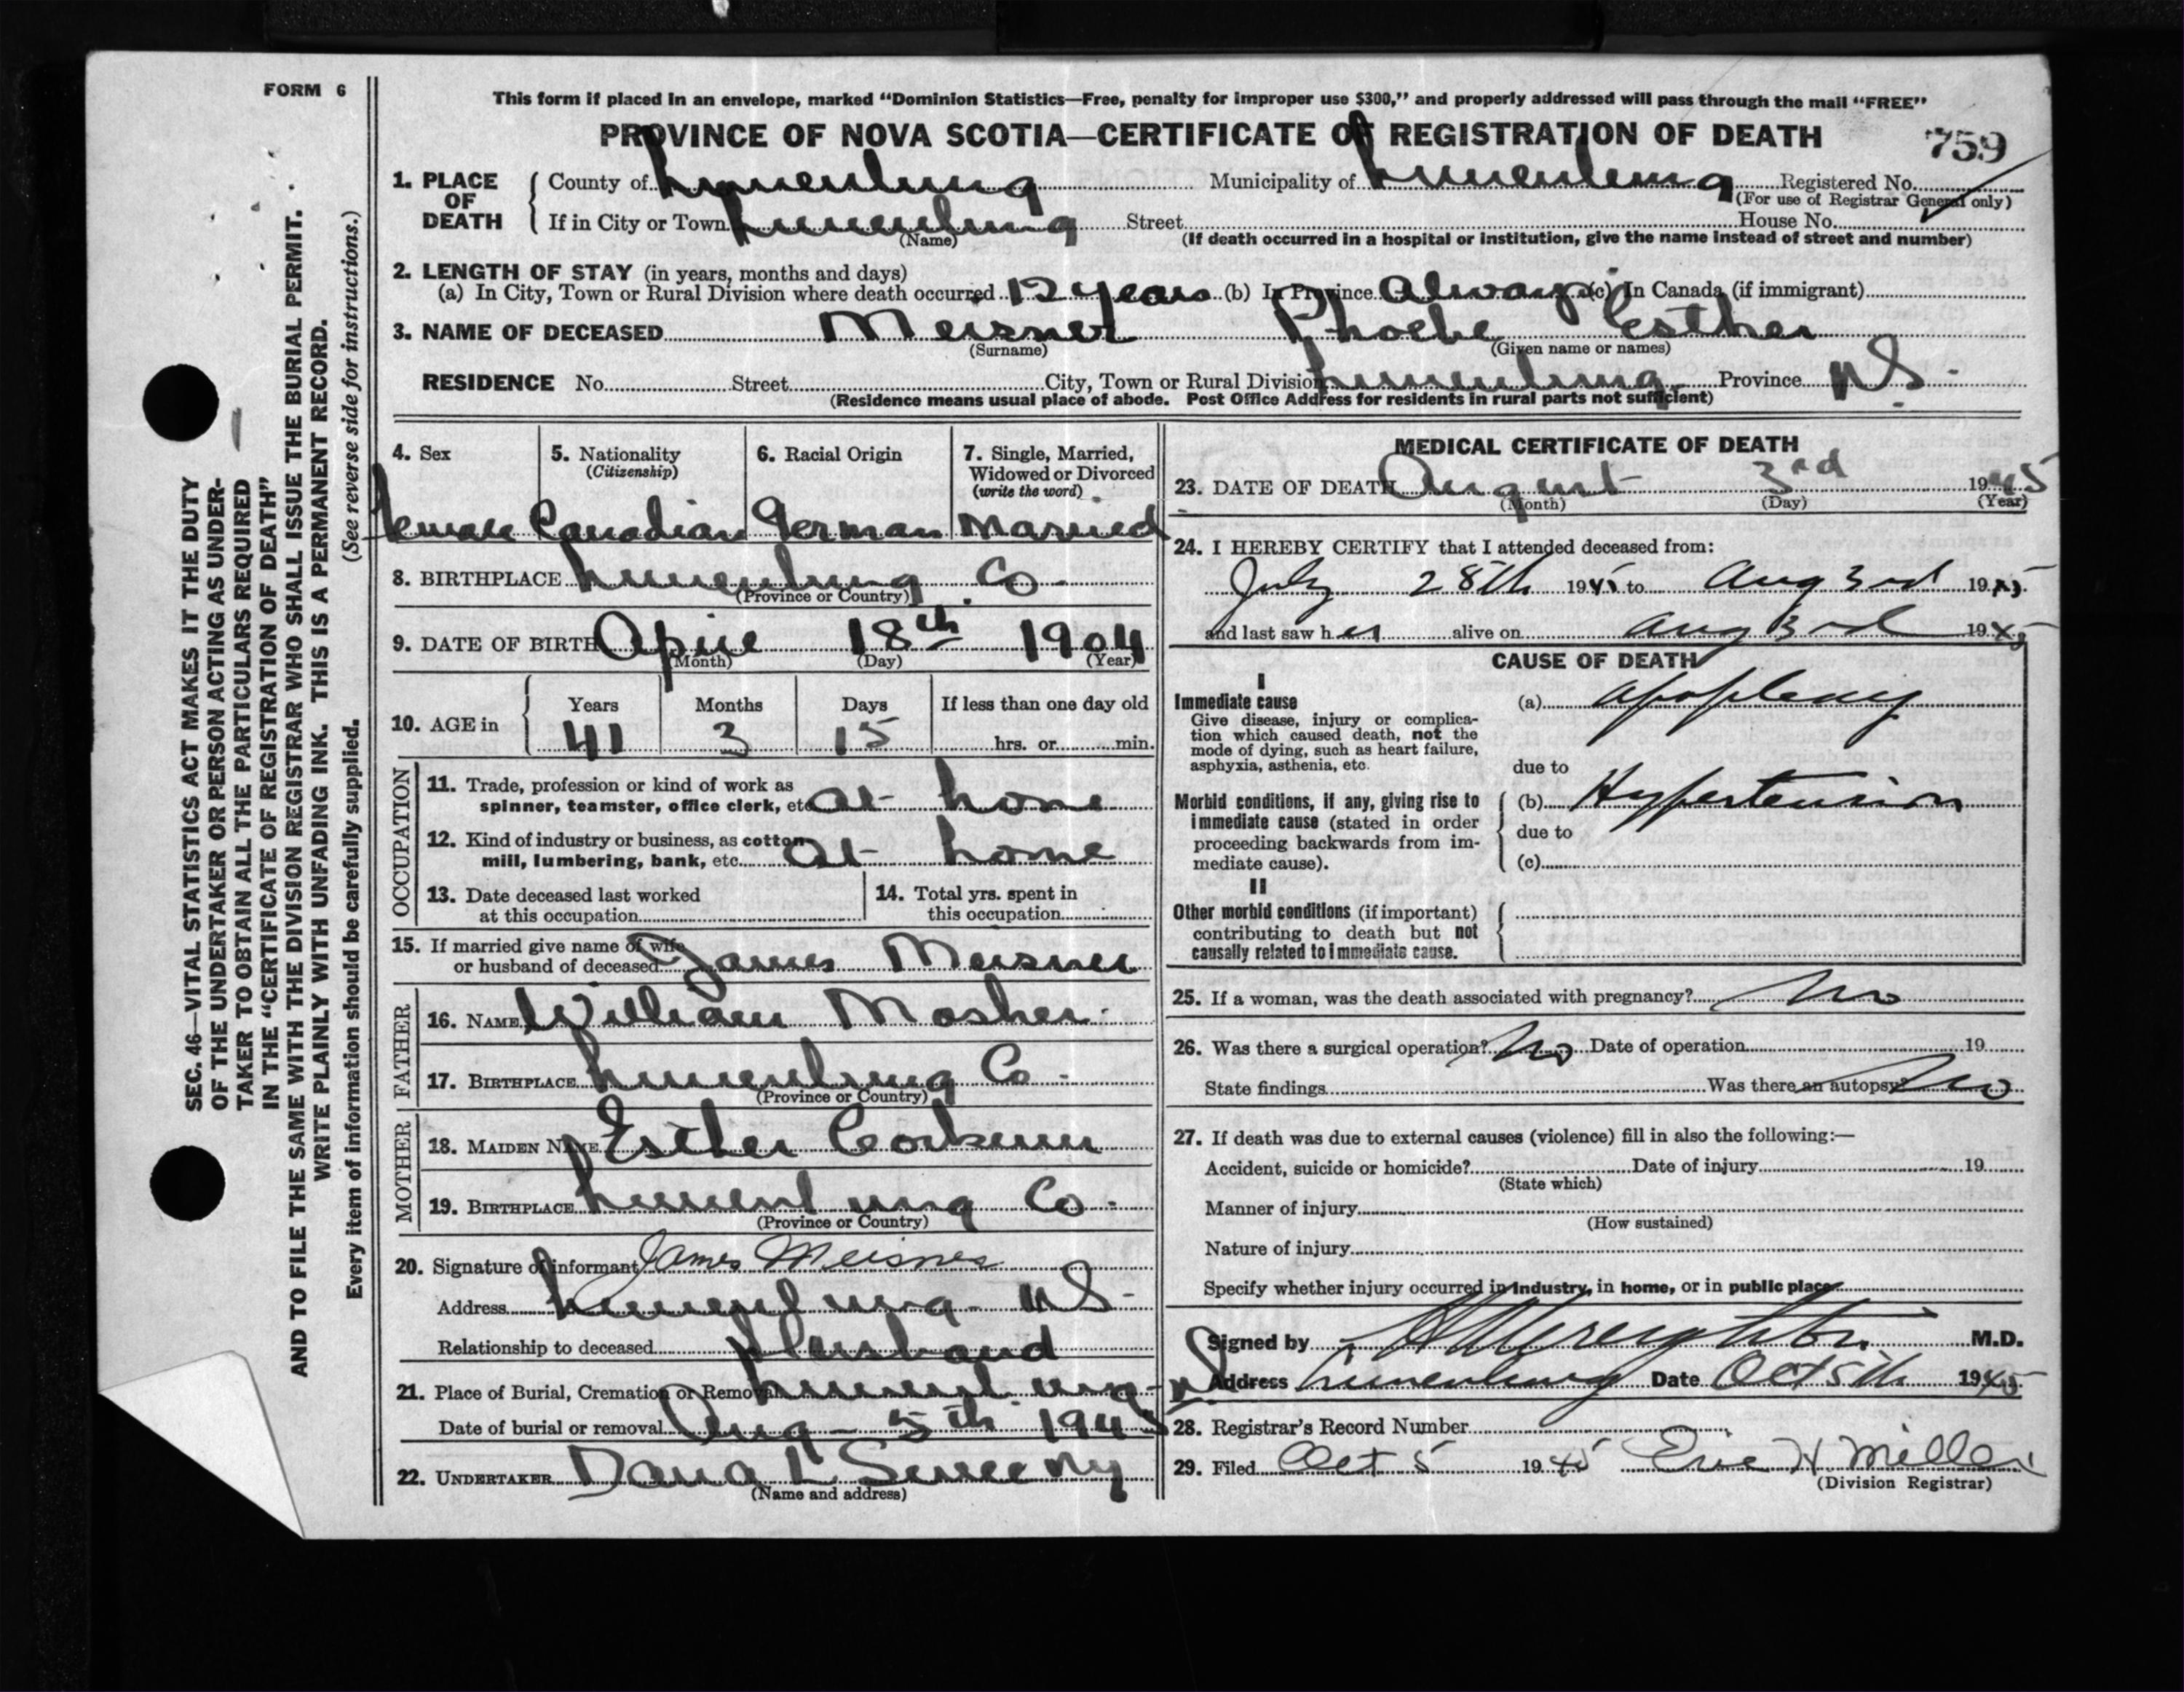 FORM 6
This form if placed in an envelope, marked “Dominion Statistics—Free, penalty for improper use $300,” and properly addressed will pass through the mail “FREE”
PROVINCE OF NOVA SCOTIA—CERTIFICATE OF REGISTRATION OF DEATH
759
1. PLACE OF DEATH
County of Lunenburg Municipality of Lunenburg Registered No.
(For use of Registrar General only)
If in City or Town Lunenburg Street House No.
(Name) (If death occurred in a hospital or institution, give the name instead of street and number)
2. LENGTH OF STAY (in years, months and days)
(a) In City, Town or Rural Division where death occurred 12 years (b) In Province Always (c) In Canada (if immigrant)
3. NAME OF DECEASED Meisner Phoebe Esther
(Surname) (Given name or names)
RESIDENCE No. Street City, Town or Rural Division Lunenburg Province NS.
(Residence means usual place of abode. Post Office Address for residents in rural parts not sufficient)
4. Sex 5. Nationality (Citizenship) 6. Racial Origin 7. Single, Married, Widowed or Divorced (write the word)
Female Canadian German Married
8. BIRTHPLACE Lunenburg Co.
(Province or Country)
9. DATE OF BIRTH April 18th 1904
(Month) (Day) (Year)
10. AGE in Years Months Days If less than one day old
41 3 15 hrs. or min.
OCCUPATION
11. Trade, profession or kind of work as
spinner, teamster, office clerk, etc. at home
12. Kind of industry or business, as cotton
mill, lumbering, bank, etc. at home
13. Date deceased last worked
at this occupation
14. Total yrs. spent in
this occupation
15. If married give name of wife
or husband of deceased James Meisner
FATHER
16. NAME William Mosher
17. BIRTHPLACE Lunenburg Co.
(Province or Country)
MOTHER
18. MAIDEN NAME Esther Corkum
19. BIRTHPLACE Lunenburg Co.
(Province or Country)
20. Signature of informant James Meisner
Address Lunenburg NS.
Relationship to deceased Husband
21. Place of Burial, Cremation or Removal Lunenburg NS
Date of burial or removal Aug 5th 1945
22. UNDERTAKER Dana L Sweeny
(Name and address)
MEDICAL CERTIFICATE OF DEATH
23. DATE OF DEATH August 3rd 1945
(Month) (Day) (Year)
24. I HEREBY CERTIFY that I attended deceased from:
July 28th 1945 to Aug 3rd 1945
and last saw her alive on Aug 3rd 1945
CAUSE OF DEATH
I
Immediate cause
Give disease, injury or complica-
tion which caused death, not the
mode of dying, such as heart failure,
asphyxia, asthenia, etc.
(a) apoplexy
due to
Morbid conditions, if any, giving rise to
immediate cause (stated in order
proceeding backwards from im-
mediate cause).
(b) Hypertension
due to
(c)
II
Other morbid conditions (if important)
contributing to death but not
causally related to immediate cause.
25. If a woman, was the death associated with pregnancy? No
26. Was there a surgical operation? No Date of operation 19
State findings Was there an autopsy? No
27. If death was due to external causes (violence) fill in also the following:—
Accident, suicide or homicide? Date of injury 19
(State which)
Manner of injury
(How sustained)
Nature of injury
Specify whether injury occurred in Industry, in home, or in public place
Signed by Creighton M.D.
Address Lunenburg Date Oct 5th 1945
28. Registrar's Record Number
29. Filed Oct 5 1945 Eric H Miller
(Division Registrar)
SEC. 46—VITAL STATISTICS ACT MAKES IT THE DUTY
OF THE UNDERTAKER OR PERSON ACTING AS UNDER-
TAKER TO OBTAIN ALL THE PARTICULARS REQUIRED
IN THE “CERTIFICATE OF REGISTRATION OF DEATH”
AND TO FILE THE SAME WITH THE DIVISION REGISTRAR WHO SHALL ISSUE THE BURIAL PERMIT.
WRITE PLAINLY WITH UNFADING INK. THIS IS A PERMANENT RECORD.
Every item of information should be carefully supplied. (See reverse side for instructions.)